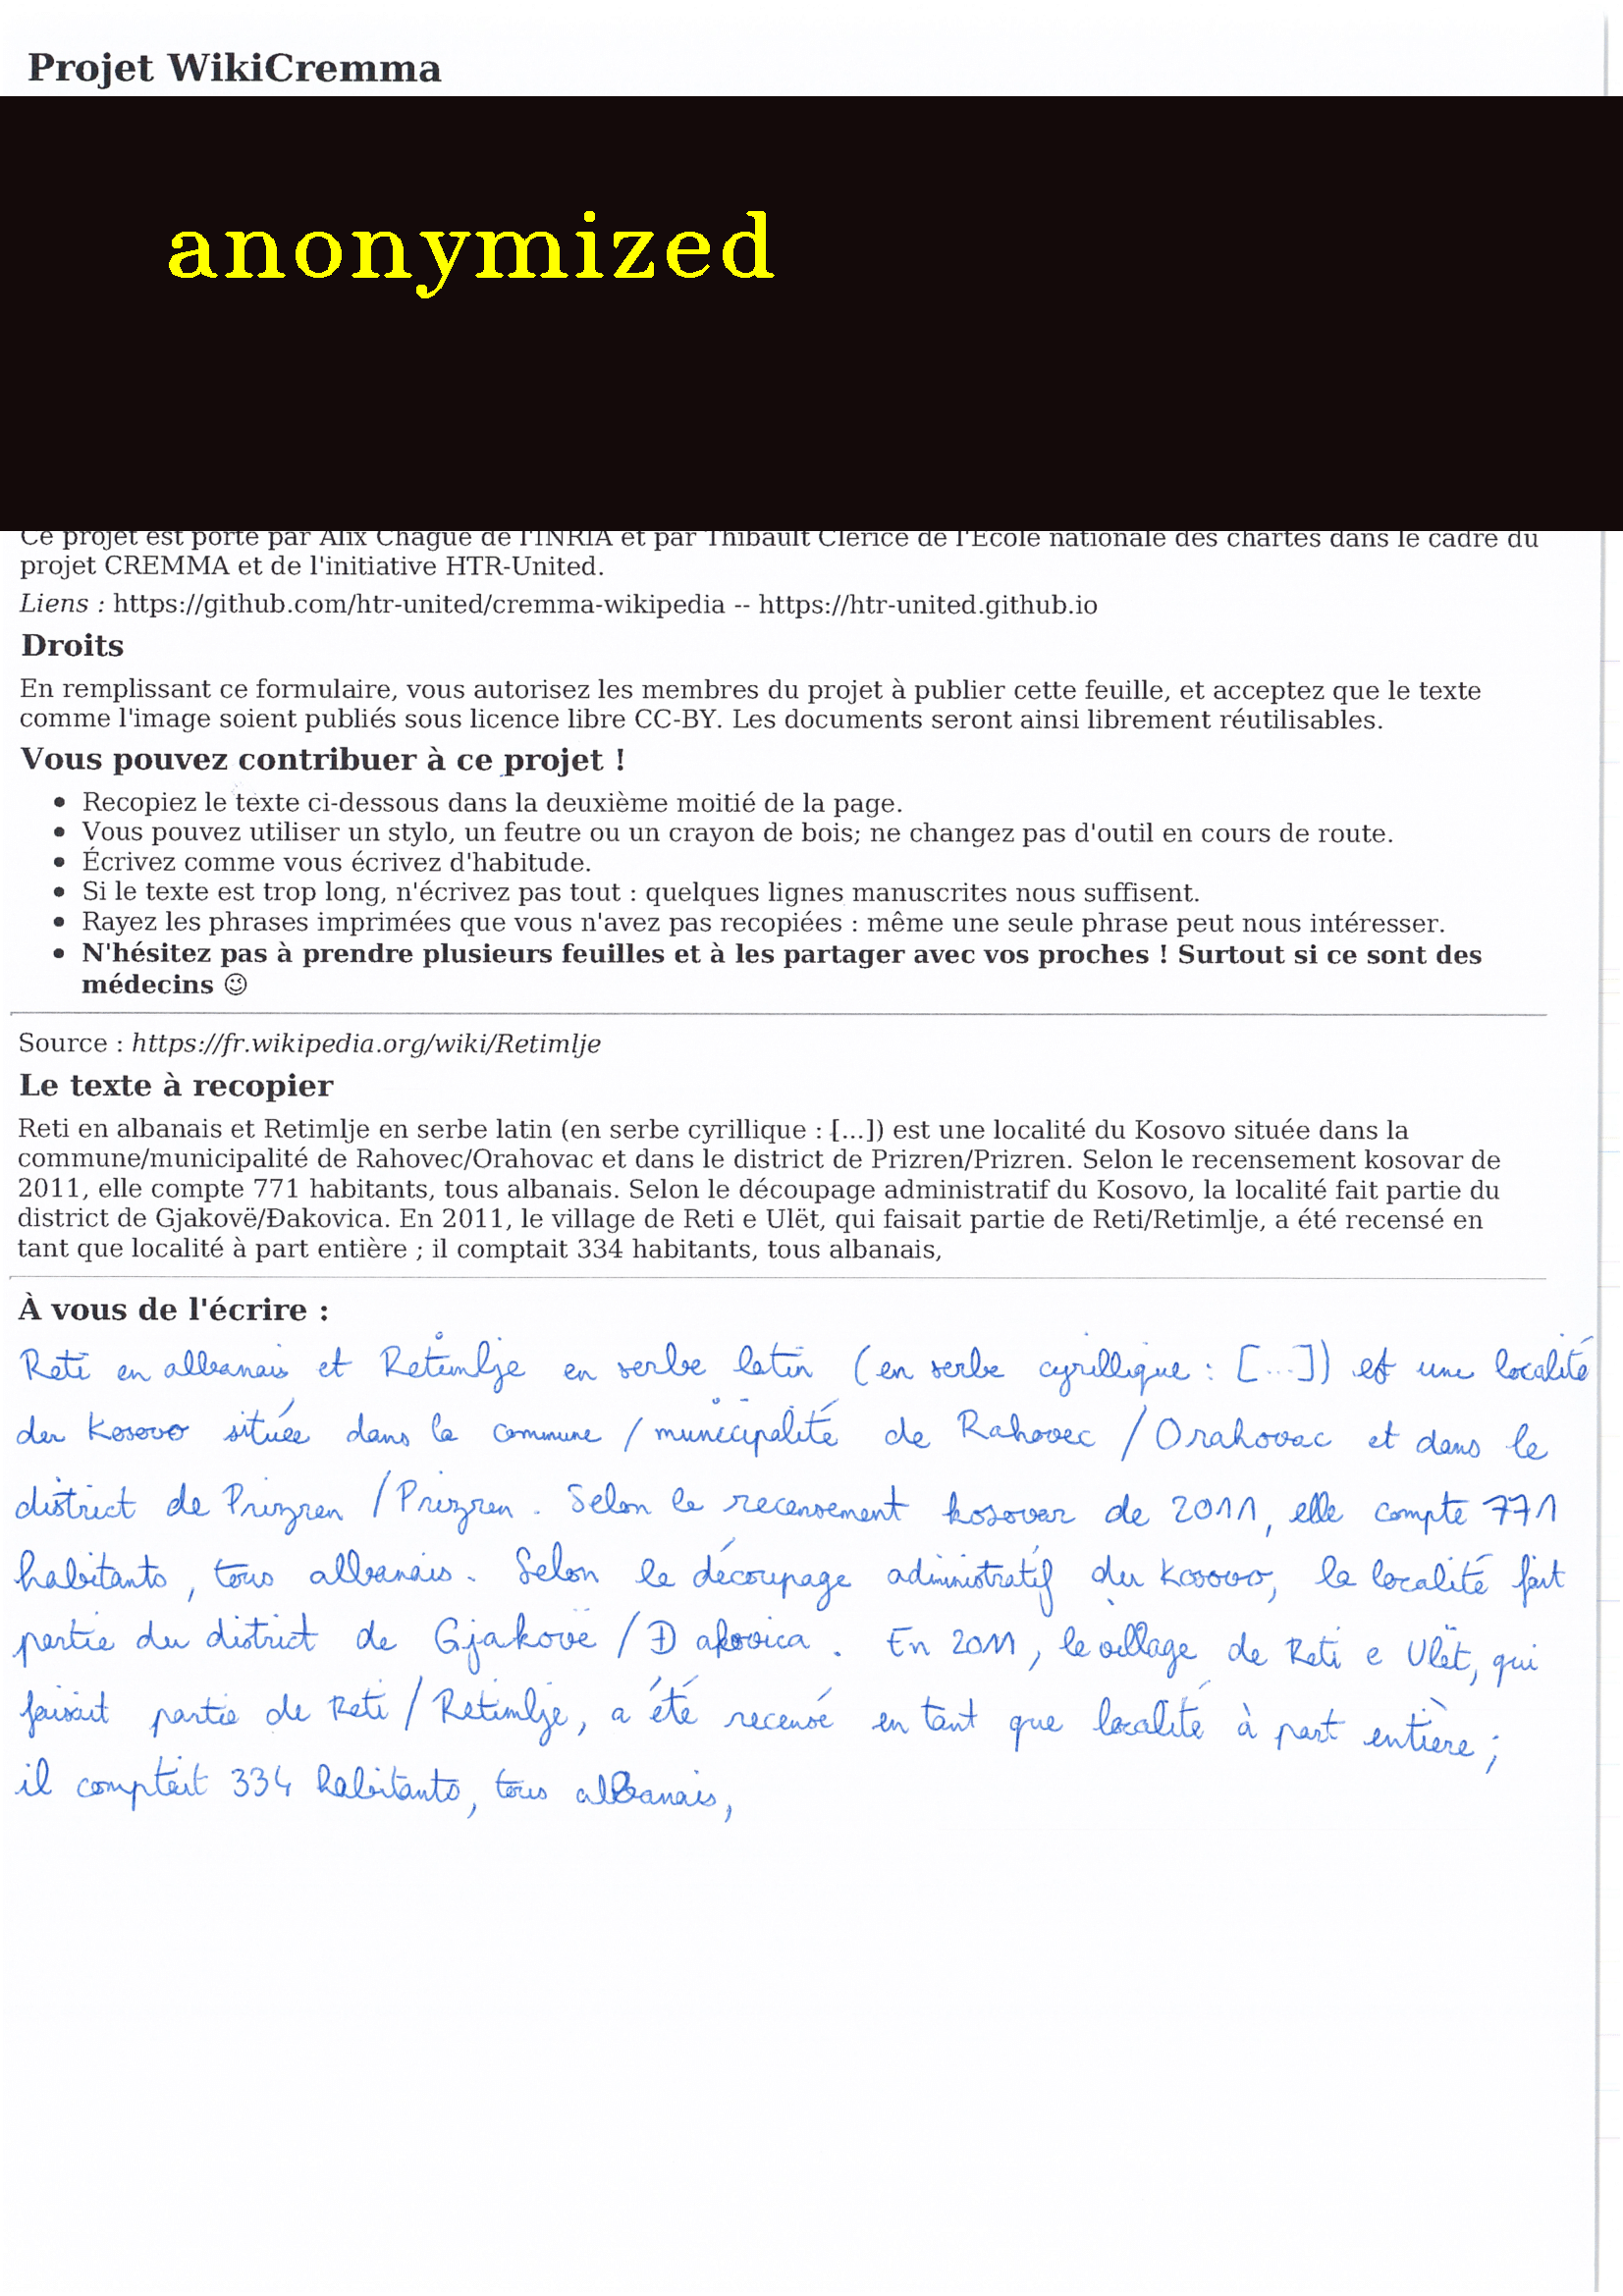 Projet WikiCremma
anonymized
Ce projet est porté par Alix Chagué de l'INRIA et par Thibault Clérice de l'École nationale des chartes dans le cadre du
projet CREMMA et de l'initiative HTR-United.
Liens : https://github.com/htr-united/cremma-wikipedia -- https://htr-united.github.io
Droits
En remplissant ce formulaire, vous autorisez les membres du projet à publier cette feuille, et acceptez que le texte
comme l'image soient publiés sous licence libre CC-BY. Les documents seront ainsi librement réutilisables.
Vous pouvez contribuer à ce projet !
• Recopiez le texte ci-dessous dans la deuxième moitié de la page.
• Vous pouvez utiliser un stylo, un feutre ou un crayon de bois; ne changez pas d'outil en cours de route.
• Écrivez comme vous écrivez d'habitude.
• Si le texte est trop long, n'écrivez pas tout : quelques lignes manuscrites nous suffisent.
• Rayez les phrases imprimées que vous n'avez pas recopiées : même une seule phrase peut nous intéresser.
• N'hésitez pas à prendre plusieurs feuilles et à les partager avec vos proches ! Surtout si ce sont des
médecins ☺
Source : https://fr.wikipedia.org/wiki/Retimlje
Le texte à recopier
Reti en albanais et Retimlje en serbe latin (en serbe cyrillique : [...]) est une localité du Kosovo située dans la
commune/municipalité de Rahovec/Orahovac et dans le district de Prizren/Prizren. Selon le recensement kosovar de
2011, elle compte 771 habitants, tous albanais. Selon le découpage administratif du Kosovo, la localité fait partie du
district de Gjakovë/Đakovica. En 2011, le village de Reti e Ulët, qui faisait partie de Reti/Retimlje, a été recensé en
tant que localité à part entière ; il comptait 334 habitants, tous albanais,
À vous de l'écrire :
Reti en albanais et Retimlje en serbe latin (en serbe cyrillique : [...]) est une localité
du Kosovo située dans la commune / municipalité de Rahovec / Orahovac et dans le
district de Prizren / Prizren. Selon le recensement kosovar de 2011, elle compte 771
habitants, tous albanais. Selon le découpage administratif du Kosovo, la localité fait
partie du district de Gjakovë / Đakovica. En 2011, le village de Reti e Ulët, qui
faisait partie de Reti / Retimlje, a été recensé en tant que localité à part entière ;
il comptait 334 habitants, tous albanais,